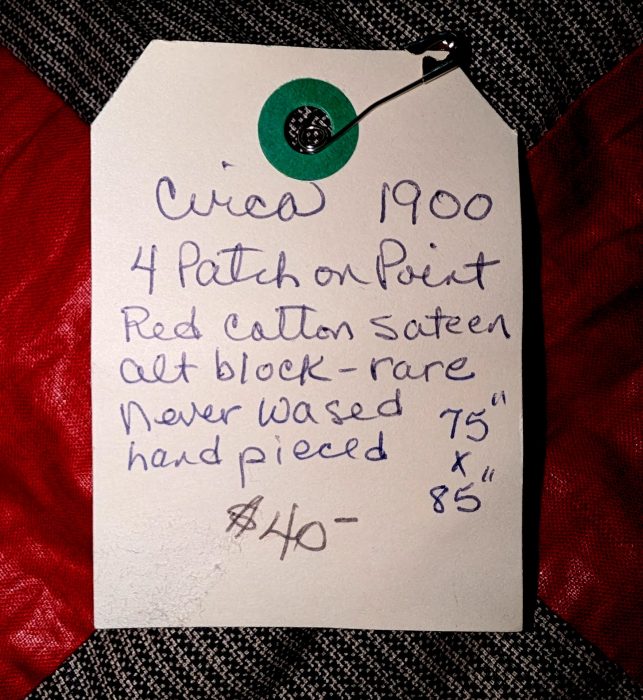 Circa 1900
4 Patch on Point
Red cotton sateen
alt block - rare
never wased 75"
hand pieced x
85"
$40-